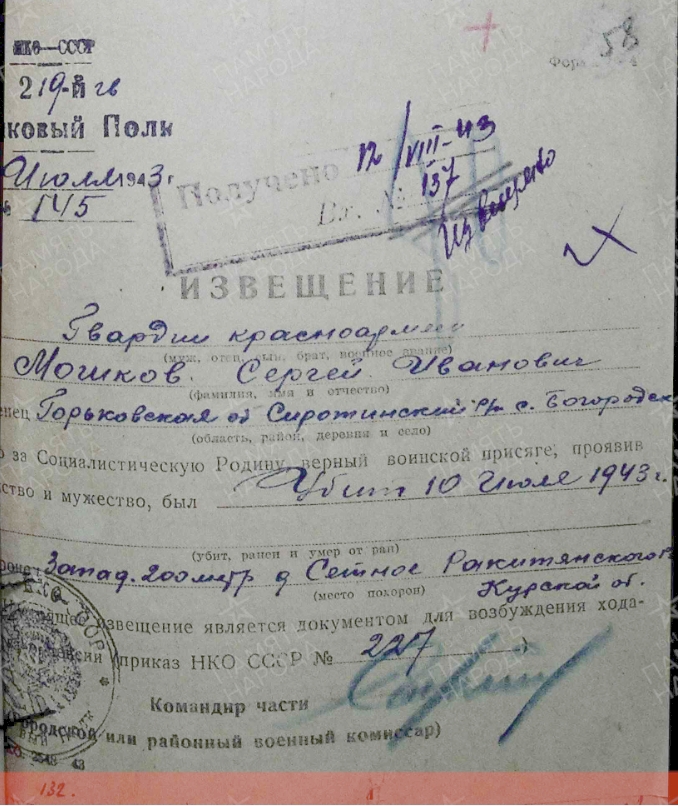 НКО—СССР
58
219-й гв
ковый Полк
Июля 1943 г
145
Получено 12/VIII-43
Вх. № 137
ИЗВЕЩЕНИЕ
Гвардии красноармеец
(муж, отец, сын, брат, военное звание)
Мошков Сергей Иванович
(фамилия, имя и отчество)
енец Горьковская об Сиротинский с. Богородск
(область, район, деревня и село)
о за Социалистическую Родину, верный воинской присяге, проявив
йство и мужество, был Убит 10 Июля 1943 г.
(убит, ранен и умер от ран)
Запад. 200 метр д Сетное Ракитянского
(место похорон) Курской об.
извещение является документом для возбуждения хода-
(приказ НКО СССР № 227 )
Командир части
(городской или районный военный комиссар)
132.